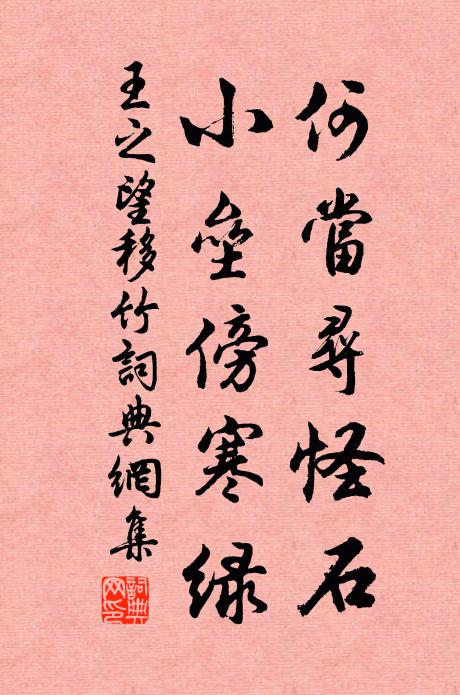 何當尋怪石
小壘傍寒緑
王之望移竹詞典網集
詞典网印